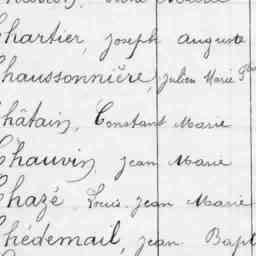 Chartier, Joseph Auguste
Chaussonnière, Julien Marie
Châtain, Constant Marie
Chauvin, Jean Marie
Chazé Louis Jean Marie
Chédemail, Jean Bapt